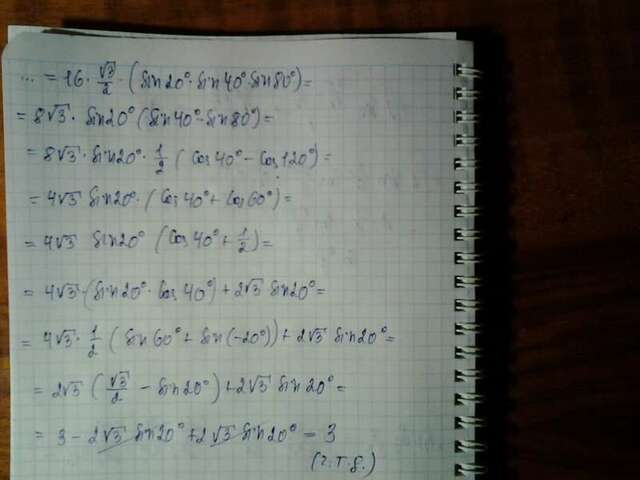 ... = 16 · √3/2 · (sin20° · sin40° · sin80°) =
= 8√3 · sin20° (sin40° · sin80°) =
= 8√3 · sin20° · 1/2 (cos40° - cos120°) =
= 4√3 sin20° · (cos40° + cos60°) =
= 4√3 sin20° (cos40° + 1/2) =
= 4√3 · (sin20° · cos40°) + 2√3 sin20° =
= 4√3 · 1/2 (sin60° + sin(-20°)) + 2√3 sin20° =
= 2√3 (√3/2 - sin20°) + 2√3 sin20° =
= 3 - 2√3 sin20° + 2√3 sin20° = 3
(ч.т.д.)